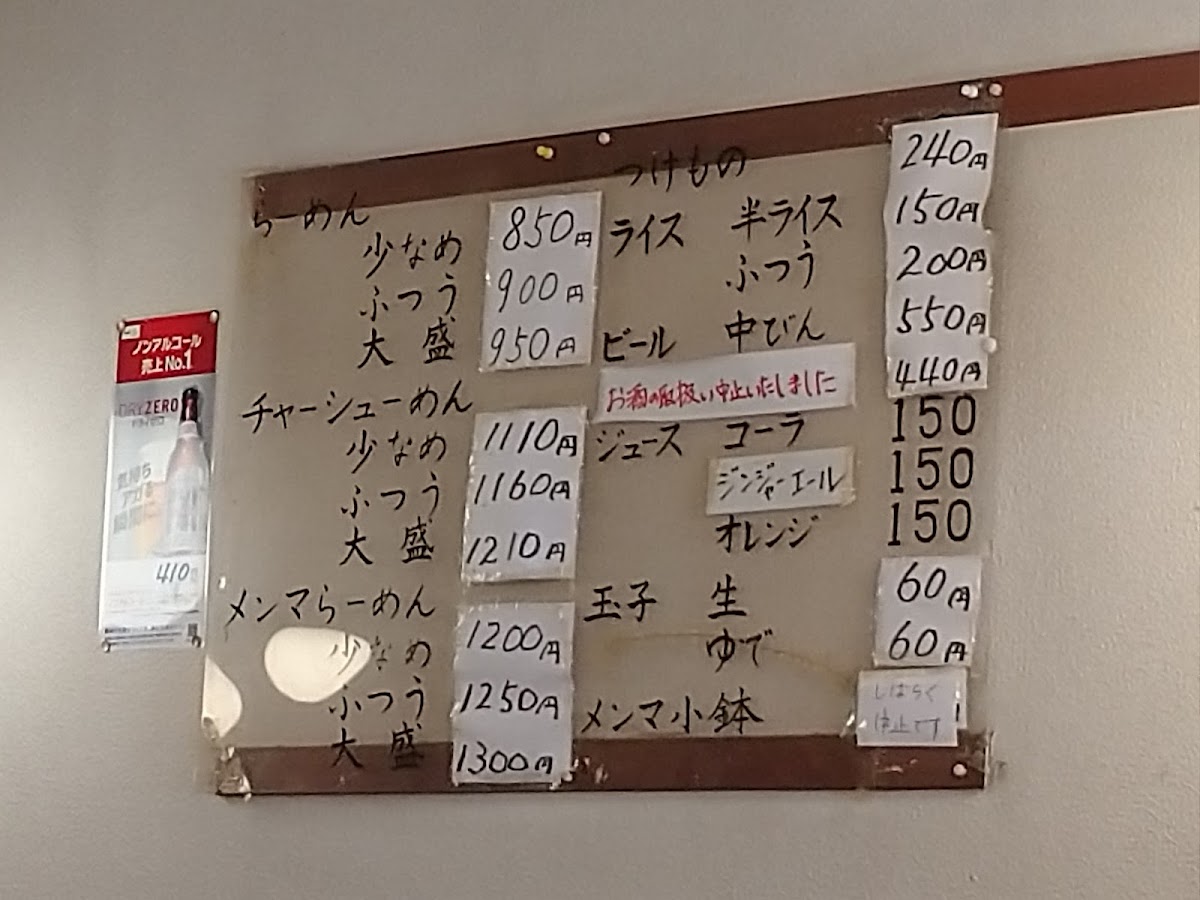 らーめん
少なめ 850円
ふつう 900円
大盛 950円
チャーシューめん
少なめ 1110円
ふつう 1160円
大盛 1210円
メンマらーめん
少なめ 1200円
ふつう 1250円
大盛 1300円
つけもの 240円
ライス 半ライス 150円
ふつう 200円
ビール 中びん 550円
お酒の取扱い中止いたしました 440円
ジュース コーラ 150
ジンジャーエール 150
オレンジ 150
玉子 生 60円
ゆで 60円
メンマ小鉢 しばらく
中止です
ノンアルコール
売上No.1
DRYZERO
気持ち
アガる
瞬間に。
410